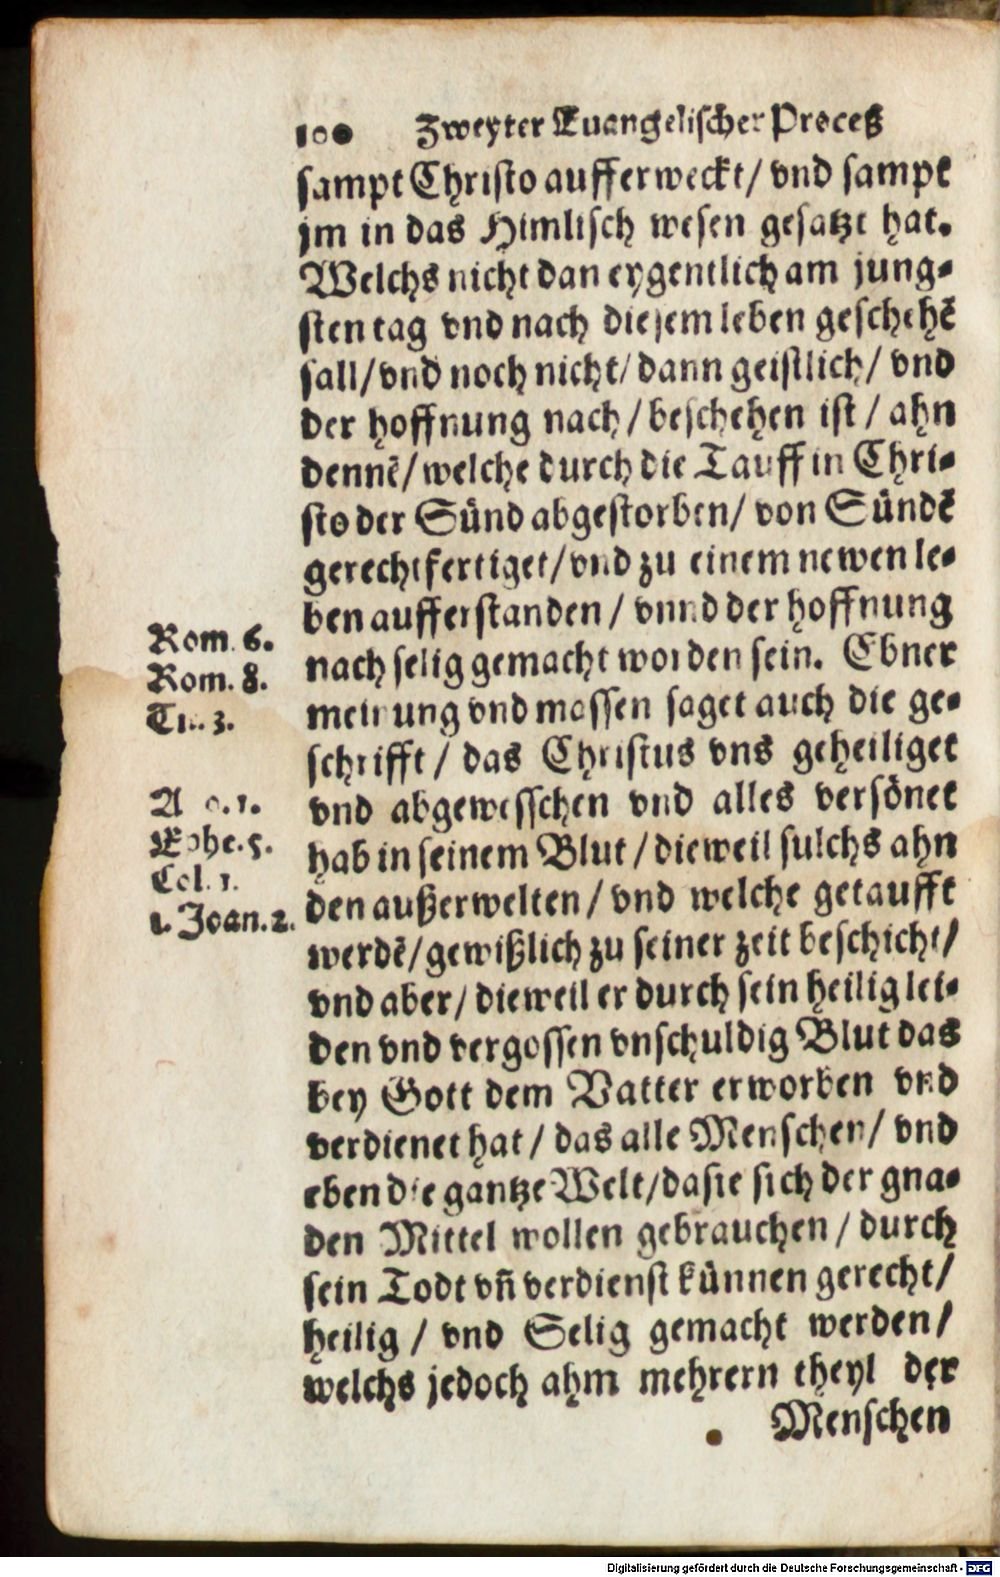 100 Zweyter Euangelischer Proceß
sampt Christo aufferweckt/ vnd sampt
jm in das Himlisch wesen gesatzt hat.
Welchs nicht dan eygentlich am jung-
sten tag vnd nach diesem leben geschehẽ
sall/ vnd noch nicht/ dann geistlich/ vnd
der hoffnung nach/ beschehen ist/ ahn
dennẽ/ welche durch die Tauff in Chri-
sto der Sünd abgestorben/ von Sündẽ
gerechtfertiget/ vnd zu einem newen le-
ben aufferstanden/ vnnd der hoffnung
Rom. 6.
nach selig gemacht worden sein. Ebner
Rom. 8.
meinung vnd massen saget auch die ge-
Tit. 3.
schrifft/ das Christus vns geheiliget
vnd abgewesschen vnd alles versönet
A o. 1.
hab in seinem Blut/ dieweil sulchs ahn
Ephe. 5.
den außerwelten/ vnd welche getaufft
Col. 1.
1. Joan. 2.
werdẽ/ gewißlich zu seiner zeit beschicht/
vnd aber/ dieweil er durch sein heilig lei-
den vnd vergossen vnschuldig Blut das
bey Gott dem Vatter erworben vnd
verdienet hat/ das alle Menschen/ vnd
eben die gantze Welt/ da sie sich der gna-
den Mittel wollen gebrauchen/ durch
sein Todt vñ verdienst künnen gerecht/
heilig/ vnd Selig gemacht werden/
welchs jedoch ahm mehrern theyl der
Menschen
Digitalisierung gefördert durch die Deutsche Forschungsgemeinschaft - DFG